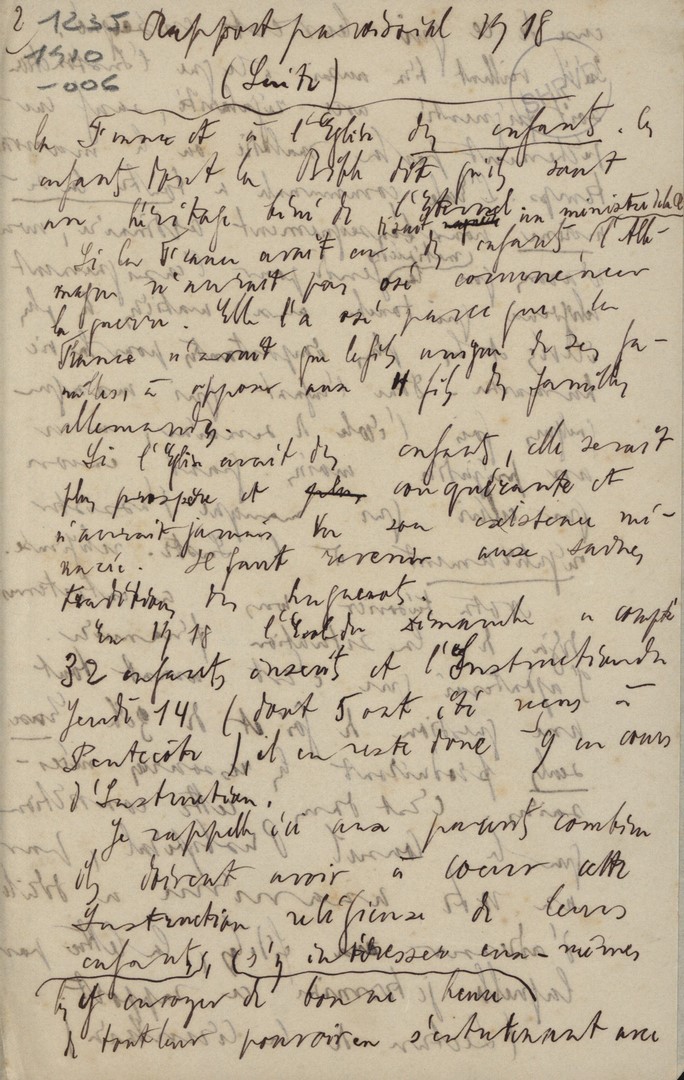 2
1235
1910
-006
Rapport paroissial 1918
(Suite)
la France et à l'Eglise des enfants. les
enfants dont la Bible dit qu'ils sont
un héritage béni de l'Eternel.
disait un ministre de la
Si la France avait eu des enfants l'Alle-
magne n'aurait pas osé commencer
la guerre. Elle l'a osé parce que la
France n'avait que le fils unique de ses fa-
milles, à opposer aux 4 fils des familles
allemandes.
Si l'Eglise avait des enfants, elle serait
plus prospère et plus conquérante et
n'aurait jamais vu son existence me-
nacée. Il faut revenir aux saines
traditions des huguenots.
En 1918 l'Ecole du Dimanche a compté
32 enfants inscrits et l'Instruction du
Jeudi 14 (dont 5 ont été reçus à
Pentecôte), il en reste donc 9 en cours
d'Instruction.
Je rappelle ici aux parents combien
ils doivent avoir à coeur cette
Instruction religieuse de leurs
enfants, s'y intéresser eux-mêmes
les y envoyer de bonne heure
de tout leur pouvoir en s'entretenant avec